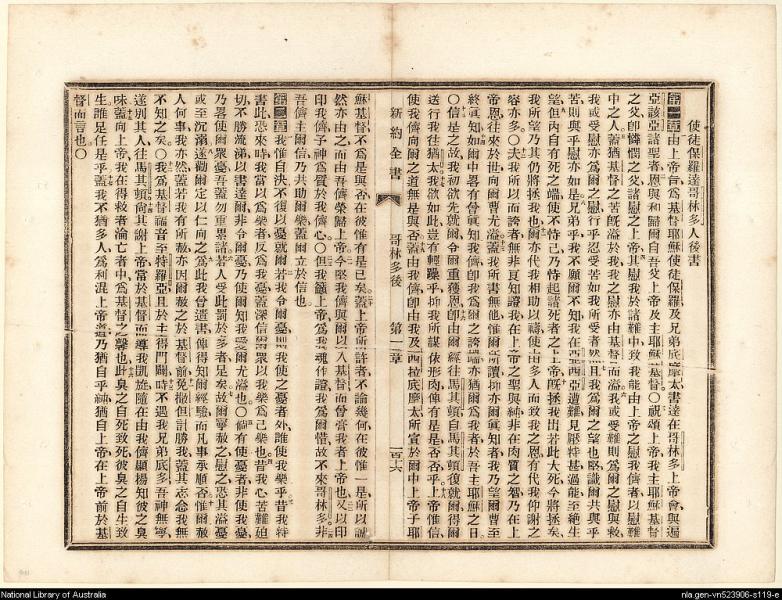 使徒保羅達哥林多人後書
第一章由上帝旨爲基督耶穌使徒保羅及兄弟底摩太書達在哥林多上帝會與遍
亞該亞諸聖者恩與和歸爾自吾父上帝及主耶穌基督〇祝頌上帝我主耶穌基督
之父卽憐憫之父諸慰之上帝其慰我於諸難中致我能由上帝之慰我儕者以慰難
中之人蓋猶基督之苦旣溢於我我之慰亦由基督而溢我或受難則爲爾之慰與救
我或受慰亦爲爾之慰行乎忍受苦如我所受者然且我爲爾之望也堅識爾共與乎
苦則與乎慰亦如是兄弟乎我不願爾不知我在亞西亞遭難見壓特甚過能至絕生
望但內自有死之端使不恃己乃恃起諸死者之上帝旣拯我出若此大死今將拯矣
我所望乃其仍將拯我也爾亦代我相助以禱使由多人而致我之恩有代我仰謝之
容亦多〇夫我所以而誇者無非良知證我在上帝之聖與純非在肉質之智乃在上
帝恩往來於世向爾曹尤溢蓋我所書無他惟爾所讀抑亦爾眞知者我乃望爾曹至
終眞知如爾中畧有曾眞知我儕卽我爲爾之誇端亦猶爾爲我者於吾主耶穌之日
〇信是之故我初欲先就爾令爾重獲恩卽由爾經往馬其頓自馬其頓復就爾得爾
送行我往猶太我欲如此豈有輕躁乎抑我所謀依形肉俾有是是否否乎上帝惟信
使我儕向爾之道無是與否蓋由我儕卽由我及西拉底摩太所宣於爾中上帝子耶
新約全書 哥林多後 第一二章 一百十六
穌基督不爲是與否在彼惟有是已矣蓋上帝所許者不論幾何在彼惟一是所以誠
然亦由之而由吾儕榮歸上帝今堅我儕與爾以入基督而曾膏我者上帝也又以印
印我儕予神爲質於我儕心〇但我籲上帝爲我魂作證我爲爾惜故不來哥林多非
吾儕主爾信乃共助爾樂蓋爾立於信也
第二章我惟自決不復以憂就爾若我令爾憂則我使之憂者外誰使我樂乎昔我特
書此恐來時我當以爲樂者反爲我憂蓋深信爾衆以我樂爲己樂也昔我心苦難廹
切不勝流涕以書達爾非令爾憂乃使爾知我愛爾尤溢也〇倘有使憂者非使我憂
乃畧使爾衆憂吾蓋勿重諸若人受此罰於多者足矣故爾寧赦之慰之恐其溢憂
或至沉溺遂勸爾定以仁向之爲此我曾遣書俾得知爾經驗而凡事承順否惟爾赦
人何事我亦然蓋若我有所赦亦因爾赦之於基督前免撒但計勝我蓋其志念我無
不知之矣〇我爲基督福音至特羅亞且於主得門闢時不遇我兄弟底多吾神無寧
遂別其人往馬其頓尙其謝上帝當於基督而導我凱旋隨在由我儕顯揚知彼之臭
味蓋向上帝我在得救者淪亡者中爲基督之馨也此臭之自死致死彼臭之自生致
生誰足任是乎蓋我不猶多人爲利混上帝道乃猶自乎純猶自上帝在上帝前於基
督而言也〇
National Library of Australia
nla.gen-vn523906-s119-e